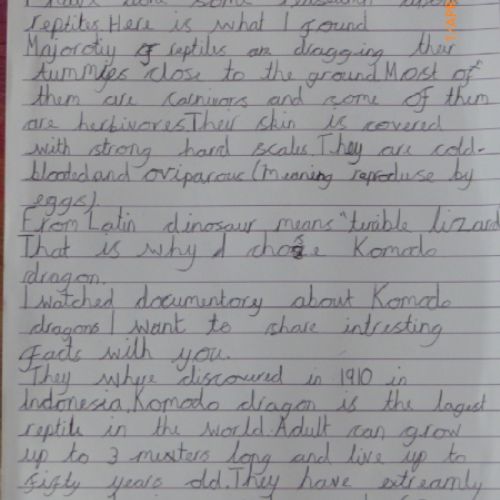 I have done some research about
reptites. Here is what I found
Majorotiy of reptiles are dragging their
tummies close to the ground. Most of
them are carnivors and some of them
are herbivores. Their skin is covered
with strong hard scales. They are cold-
blooded and oviparous (meaning reproduse by
eggs).
From Latin dinosaur means "terrible lizard
That is why I chose Komodo
dragon.
I watched documentory about Komodo
dragons I want to share intresting
facts with you.
They whye discoured in 1910 in
Indonesia. Komodo dragon is the lagest
reptile in the world. Adult can grow
up to 3 meters long and live up to
fifty years old. They have extreamly